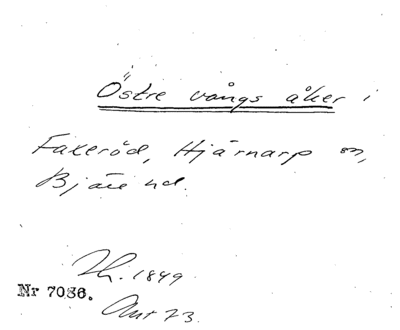 Östre vångs åker i
Faxeröd, Hjärnarp sn,
Bjäre hd.
Th. 1849
Nr 7036.
Ant 73.